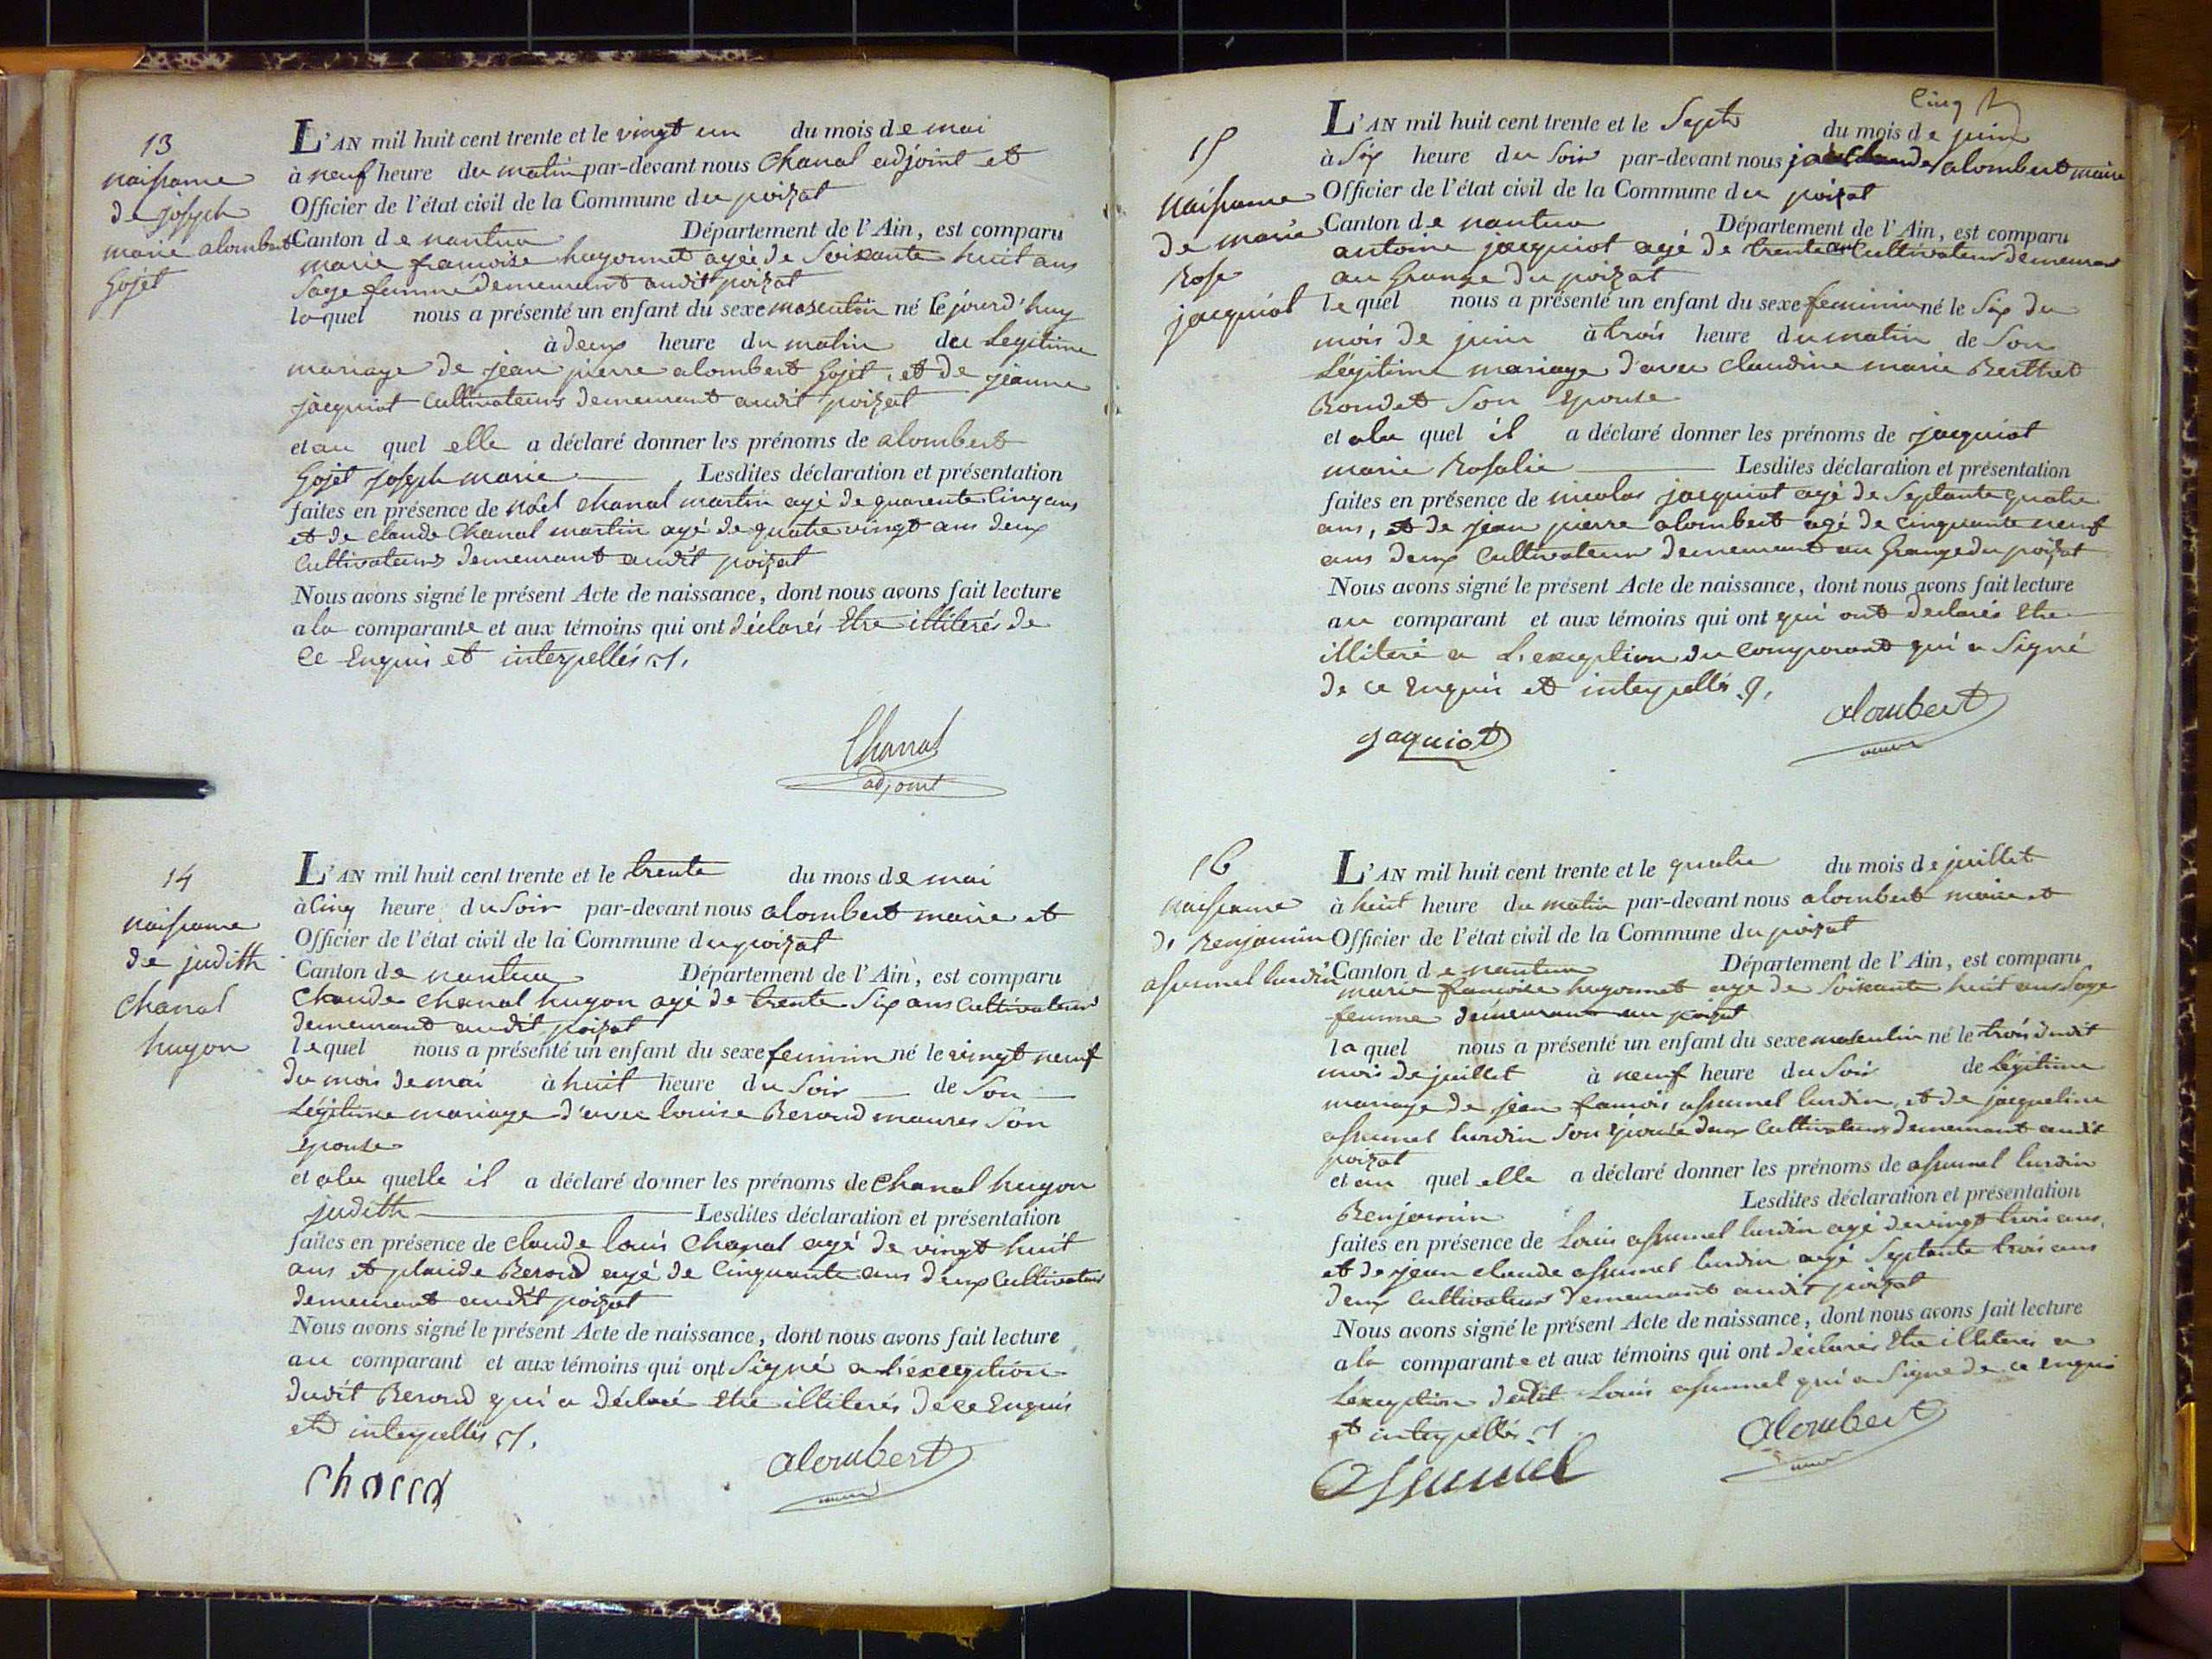 13
naissance
de joseph
marie alombert
Gojet
L'AN mil huit cent trente et le vingt un du mois de mai
à neuf heure du matin par-devant nous Chanal adjoint et
Officier de l'état civil de la Commune du poizat
Canton de nantua Département de l'Ain, est comparu
marie francoise hugonnet agée de Soixante huit ans
Sage femme demeurant audit poizat
laquel nous a présenté un enfant du sexe masculin né le jourd'huy
à deux heure du matin du Légitime
mariage de jean pierre alombert Gojet, et de jeanne
jacquiot Cultivateurs demeurant audit poizat
et au quel elle a déclaré donner les prénoms de alombert
Gojet joseph marie Lesdites déclaration et présentation
faites en présence de noël Chanal martin agé de quarente Cinq ans
et de claude Chanal martin agé de quatre vingt ans deux
Cultivateurs demeurant audit poizat
Nous avons signé le présent Acte de naissance, dont nous avons fait lecture
a la comparante et aux témoins qui ont déclarés Etre illiterés de
Ce Enquis et interpellés
Chanal
adjoint
14
naissance
de judith
Chanal
hugon
L'AN mil huit cent trente et le trente du mois de mai
à Cinq heure du Soir par-devant nous alombert maire et
Officier de l'état civil de la Commune du poizat
Canton de nantua Département de l'Ain, est comparu
Claude Chanal hugon agé de trente Six ans Cultivateur
demeurant audit poizat
lequel nous a présenté un enfant du sexe feminin né le vingt neuf
du mois de mai à huit heure du Soir de Son
Légitime mariage d'avec louise Beroud maures Son
Epouse
et ala quelle il a déclaré donner les prénoms de Chanal hugon
judith Lesdites déclaration et présentation
faites en présence de Claude louis Chanal agé de vingt huit
ans et placide Beroud agé de Cinquante ans deux Cultivateurs
demeurant audit poizat
Nous avons signé le présent Acte de naissance, dont nous avons fait lecture
au comparant et aux témoins qui ont Signé a L'éxception
dudit Beroud qui a déclaré Etre illiterés de ce Enquis
et interpellés
Alombert
Cinq
15
naissance
de marie
Rose
jacquiot
L'AN mil huit cent trente et le Sept du mois de juin
à Six heure du Soir par-devant nous alombert maire
Officier de l'état civil de la Commune du poizat
Canton de nantua Département de l'Ain, est comparu
antoine jacquiot agé de trente Cultivateur demeurant
au Grange du poizat
lequel nous a présenté un enfant du sexe feminin né le Six du
mois de juin à trois heure du matin de Son
Légitime mariage d'avec Claudine marie Berthet
Bondet Son Epouse
et ala quel il a déclaré donner les prénoms de jacquiot
marie Rosalie Lesdites déclaration et présentation
faites en présence de nicolas jacquiot agé de Septante quatre
ans, et de jean pierre alombert agé de Cinquante neuf
ans deux Cultivateurs demeurant au Grange du poizat
Nous avons signé le présent Acte de naissance, dont nous avons fait lecture
au comparant et aux témoins qui ont qui ont declarés Etre
illiteré a L'exception du Comparant qui a Signé
de ce Enquis et interpellés
Jaquiot
Alombert
16
naissance
de Benjamin
assumel lurdin
L'AN mil huit cent trente et le quatre du mois de juillet
à huit heure du matin par-devant nous alombert maire et
Officier de l'état civil de la Commune du poizat
Canton de nantua Département de l'Ain, est comparu
marie francoise hugonnet agé de Soixante huit ans Sage
femme demeurant au poizat
laquel nous a présenté un enfant du sexe masculin né le trois dudit
mois de juillet à neuf heure du Soir de Légitime
mariage de jean francois assumel lurdin, et de jacqueline
assumel lurdin Son Epouse deux Cultivateurs demeurant audit
poizat
et au quel elle a déclaré donner les prénoms de assumel lurdin
Benjamin Lesdites déclaration et présentation
faites en présence de Louis assumel lurdin agé de vingt trois ans,
et de jean claude assumel lurdin agé Septante trois ans
deux Cultivateurs demeurant audit poizat
Nous avons signé le présent Acte de naissance, dont nous avons fait lecture
a la comparante et aux témoins qui ont déclarés Etre illiterés a
L'exception dudit Louis assumel qui a Signé de ce enquis
et interpellés
Assumel
Alombert